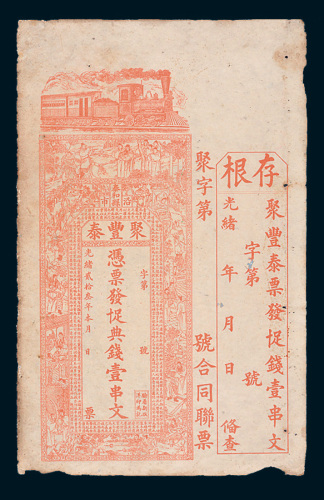 存根
聚豐泰票發足錢壹串文
字第 號
光緒 年 月 日
俻查
聚字第 號合同聯票
聚豐泰
字第 號
憑票發足典錢壹串文
光緒貳拾叁年叁月 日 票